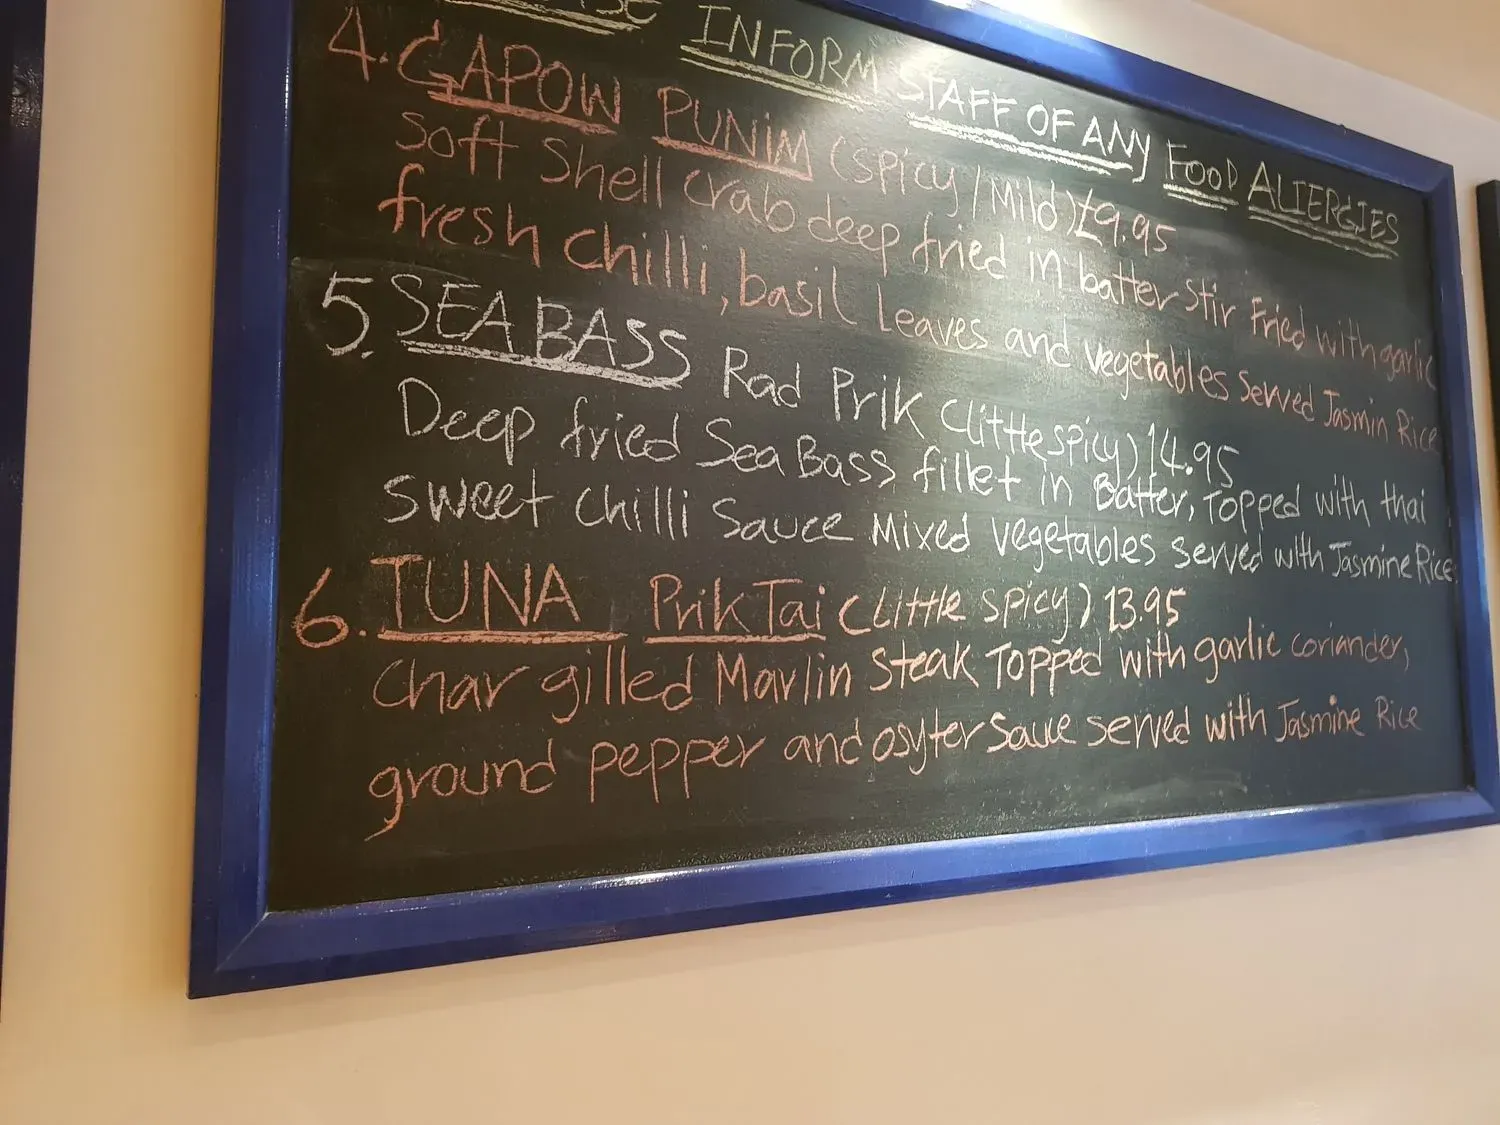 INFORM STAFF OF ANY FOOD ALIERGIES
4. GAPOW PUNIM (spicy / Mild) £9.95
Soft Shell crab deep fried in batter Stir Fried with garlic
fresh chilli, basil Leaves and vegetables Served Jasmin Rice
5. SEA BASS Rad Prik (little spicy) 14.95
Deep fried Sea Bass fillet in Batter, Topped with thai
sweet chilli Sauce Mixed vegetables served with Jasmine Rice
6. TUNA Prik Tai (Little spicy) 13.95
Char gilled Mavlin Steak Topped with garlic coriander,
ground pepper and osyter Sauce served with Jasmine Rice